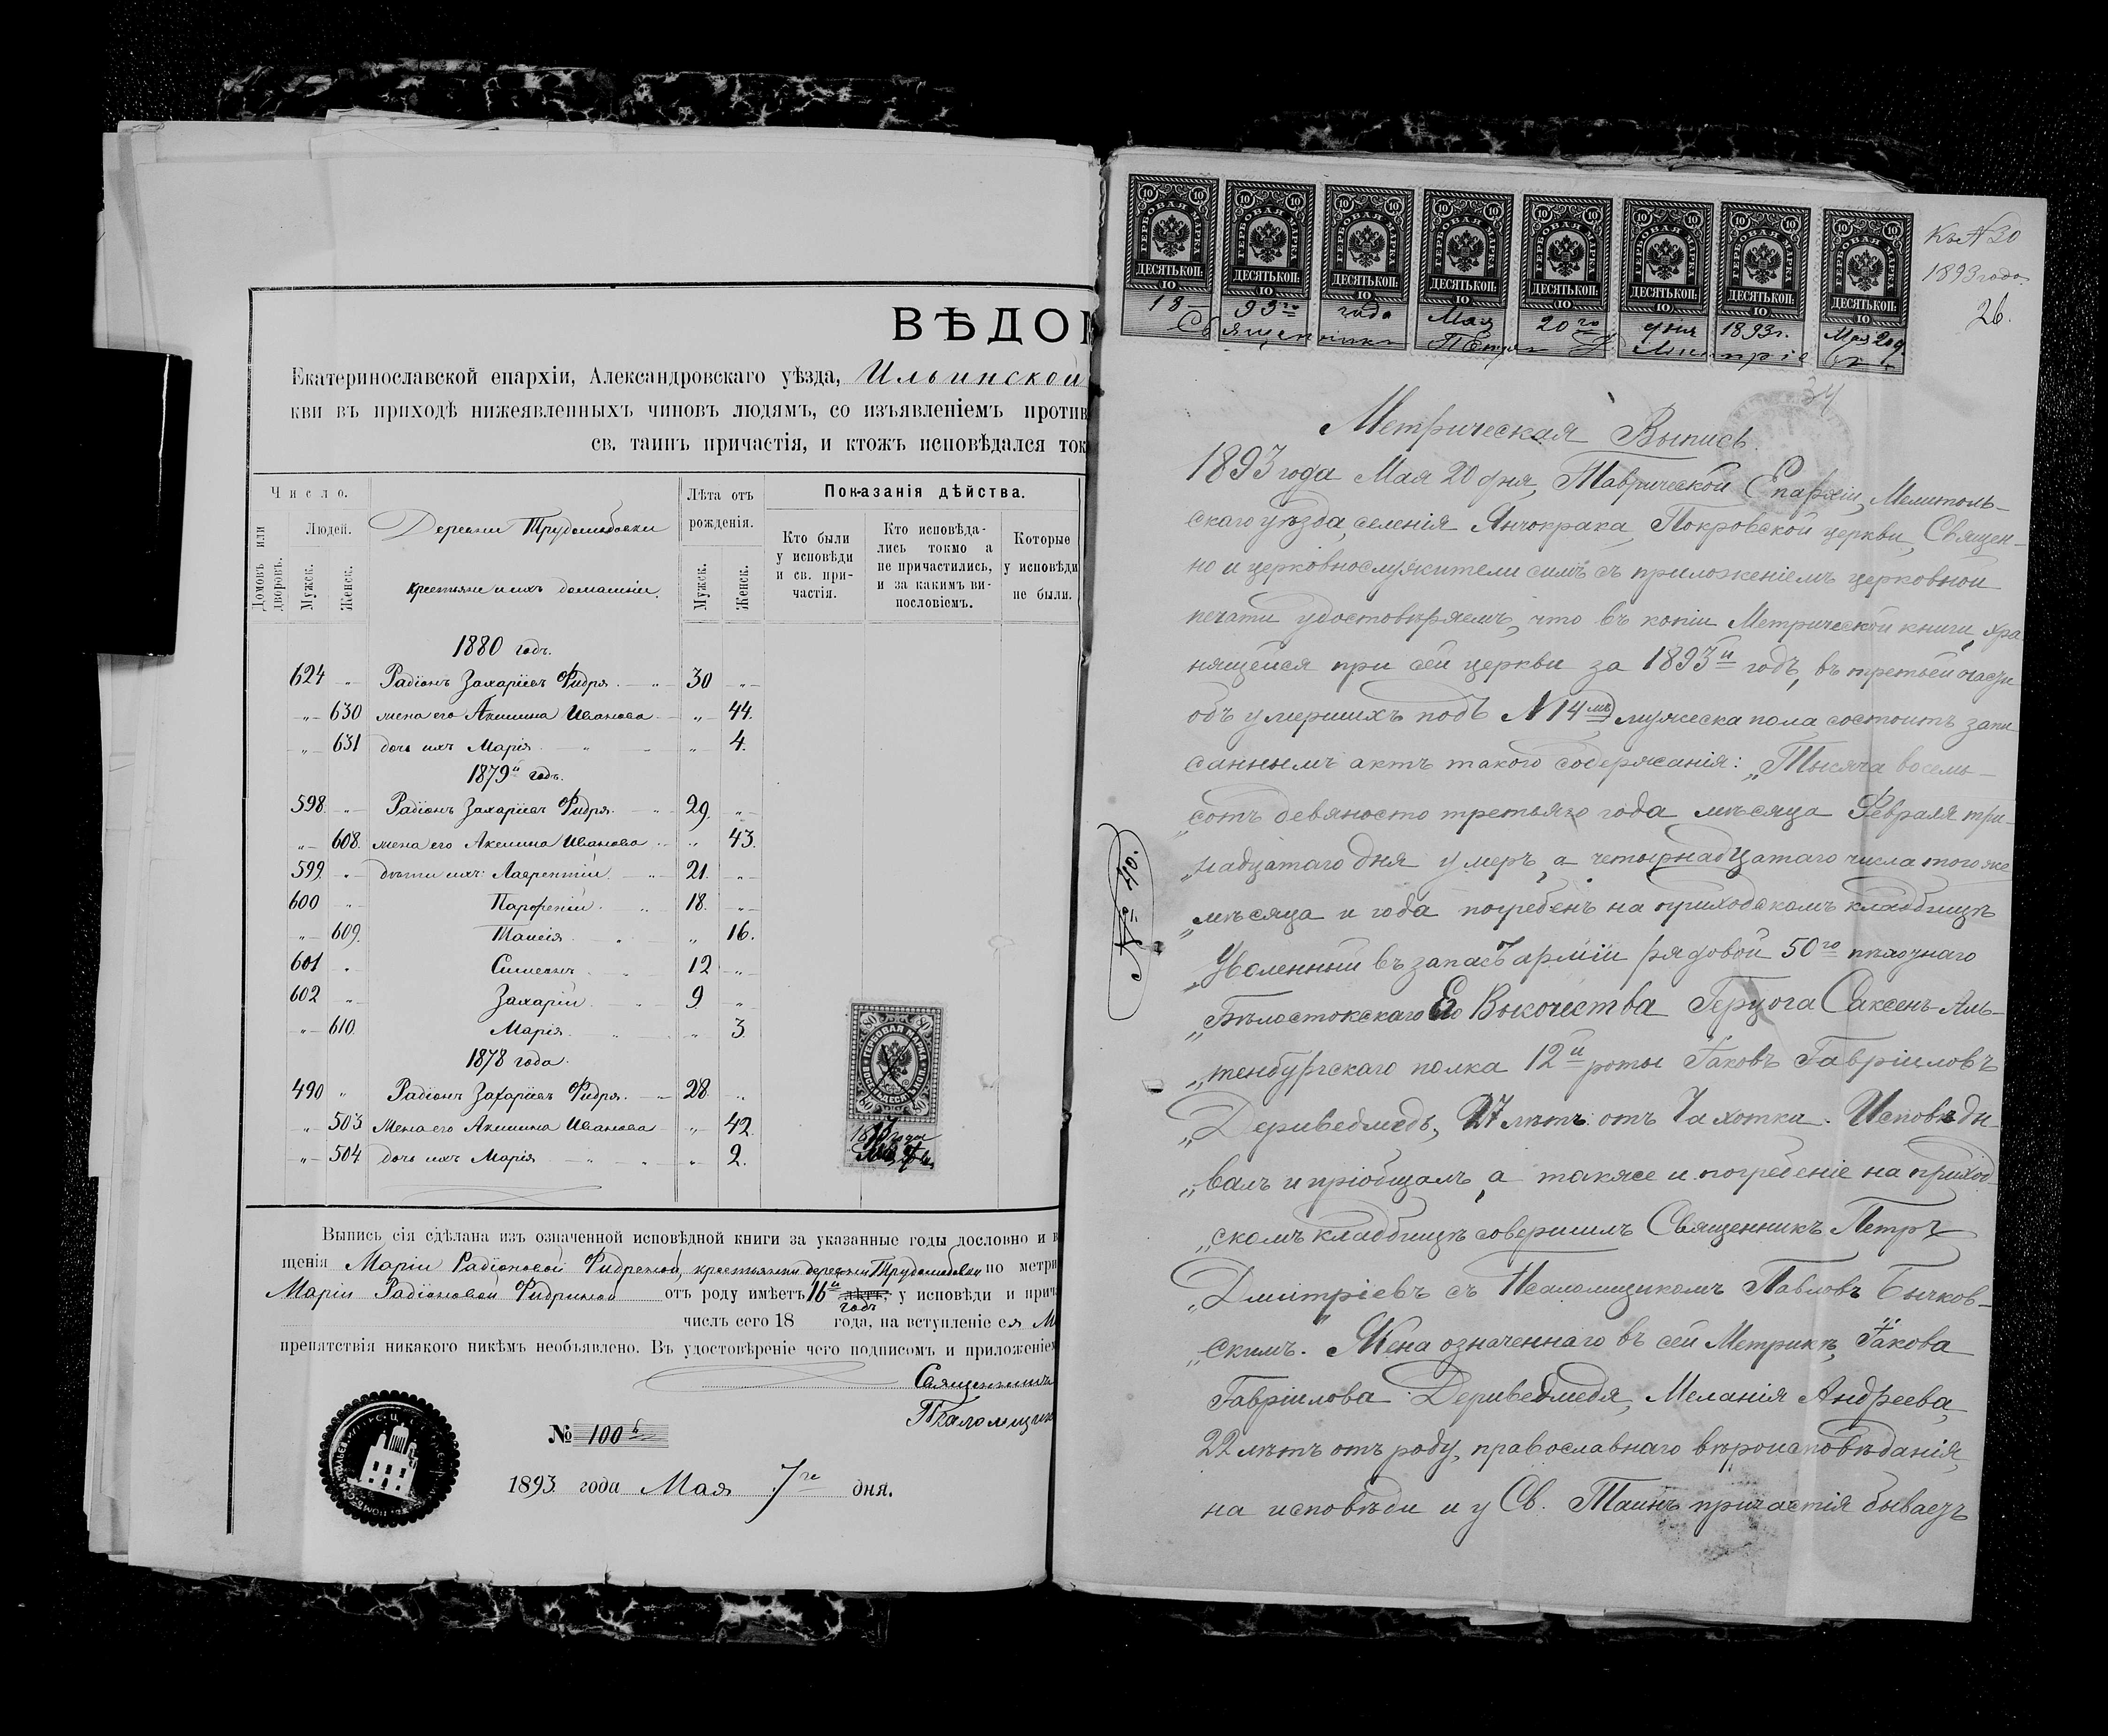 ВѢДОМ
Екатеринославской епархіи, Александровскаго уѣзда, Ильинской
кви въ приходѣ нижеявленныхъ чиновъ людямъ, со изъявленіемъ против
св. таинъ причастія, и ктожъ исповѣдался ток
Число.
Домовъ или дворовъ.
Людей.
Мужск.
Женск.
Деревни Трудолюбовки
крестьяне и ихъ домашніи.
Лѣта отъ рожденія.
Мужск.
Женск.
Показанія дѣйства.
Кто были у исповѣди и св. причастія.
Кто исповѣдались токмо а не причастились, и за какимъ винословіемъ.
Которые у исповѣди не были.
1880 годъ.
624 „ Радіонъ Захаріевъ Фидря 30 „
„ 630 жена его Акилина Иванова „ 44.
„ 631 дочь ихъ Марія „ 4.
1879й годъ.
598. „ Радіонъ Захаріевъ Фидря. 29. „
„ 608. жена его Акилина Иванова „ 43.
599. „ дѣти ихъ: Лаврентій 21. „
600 „ Парѳеній 18. „
„ 609. Таисія „ 16.
601 „ Симеонъ 12 „
602 „ Захарій 9 „
„ 610. Марія „ 3.
1878 года.
490 „ Радіонъ Захаріевъ Фидря. 28. „
„ 503 Жена его Акилина Иванова „ 42.
„ 504 дочь ихъ Марія „ 2.
80 80
ГЕРБОВАЯ МАРКА
80 80
Выпись сія сдѣлана изъ означенной исповѣдной книги за указанные годы дословно и в
щенія Маріи Радіоновой Фидриной, крестьянки деревни Трудолюбовки по метри
Маріи Радіоновой Фидриной отъ роду имѣетъ 16й лѣтъ, годъ у исповѣди и прич
числъ сего 18 года, на вступленіе ея
препятствія никакого никѣмъ необъявлено. Въ удостовѣреніе чего подписомъ и приложеніем
Священникъ
Псаломщик
№ 100
1893. года Мая 7го дня.
10 10 ГЕРБОВАЯ МАРКА ДЕСЯТЬ КОП. 10
10 10 ГЕРБОВАЯ МАРКА ДЕСЯТЬ КОП. 10
10 10 ГЕРБОВАЯ МАРКА ДЕСЯТЬ КОП. 10
10 10 ГЕРБОВАЯ МАРКА ДЕСЯТЬ КОП. 10
10 10 ГЕРБОВАЯ МАРКА ДЕСЯТЬ КОП. 10
10 10 ГЕРБОВАЯ МАРКА ДЕСЯТЬ КОП. 10
10 10 ГЕРБОВАЯ МАРКА ДЕСЯТЬ КОП. 10
10 10 ГЕРБОВАЯ МАРКА ДЕСЯТЬ КОП. 10
18 93го года Мая 20го дня 1893г. Мая 20 д.
Священникъ Петръ
Къ № 30
1893 года.
26.
34
Метрическая Выпись.
1893 года Мая 20 дня, Таврической Епархіи, Мелитополь-
скаго уѣзда, селенія Янчокрака, Покровской церкви, Священ-
но и церковнослужители симъ съ приложеніемъ церковной
печати удостовѣряемъ, что въ копіи Метрической книги, хра
нящейся при сей церкви за 1893й годъ, въ третьей части
объ умершихъ подъ №14мъ мужеска пола состоитъ запи
саннымъ актъ такого содержанія: „Тысяча восемь-
„сотъ девяносто третьяго года мѣсяца Февраля три-
„надцатаго дня умеръ, а четырнадцатаго числа того же
„мѣсяца и года погребенъ на приходскомъ кладбищѣ
„Уволенный въ запасъ арміи рядовой 50го пѣхотнаго
„Бѣлостокскаго Его Высочества Герцога Саксенъ-Аль-
„тенбургскаго полка 12й роты Іаковъ Гавріиловъ
„Дериведмедь, 27 лѣтъ отъ Чахотки. Исповѣды-
„валъ и пріобщалъ, а также и погребеніе на приход-
„скомъ кладбищѣ совершилъ Священникъ Петръ
„Дмитріевъ съ Псаломщикомъ Павломъ Бычков-
„скимъ. Жена означеннаго въ сей Метрикѣ, Іакова
Гавріилова Дериведмедя, Меланія Андреева,
22 лѣтъ отъ роду, православнаго вѣроисповѣданія,
на исповѣди и у Св. Таинъ причастія бываетъ
№ 40.